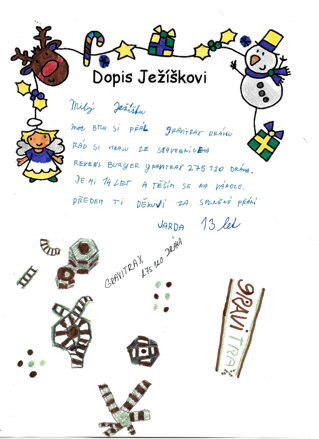 Dopis Ježíškovi
Milý Ježíšku
moc bych si přál gravitrax dráhu
rád si hraju ze stavebnicema
Burger gravitrax 275 120 dráha.
je mi 14 let a těším se na vánoce.
předem ti děkuji za splnění přání
Varda 13 let
GRAVITRAX
275 120 DRÁHA
GRAVITRAX